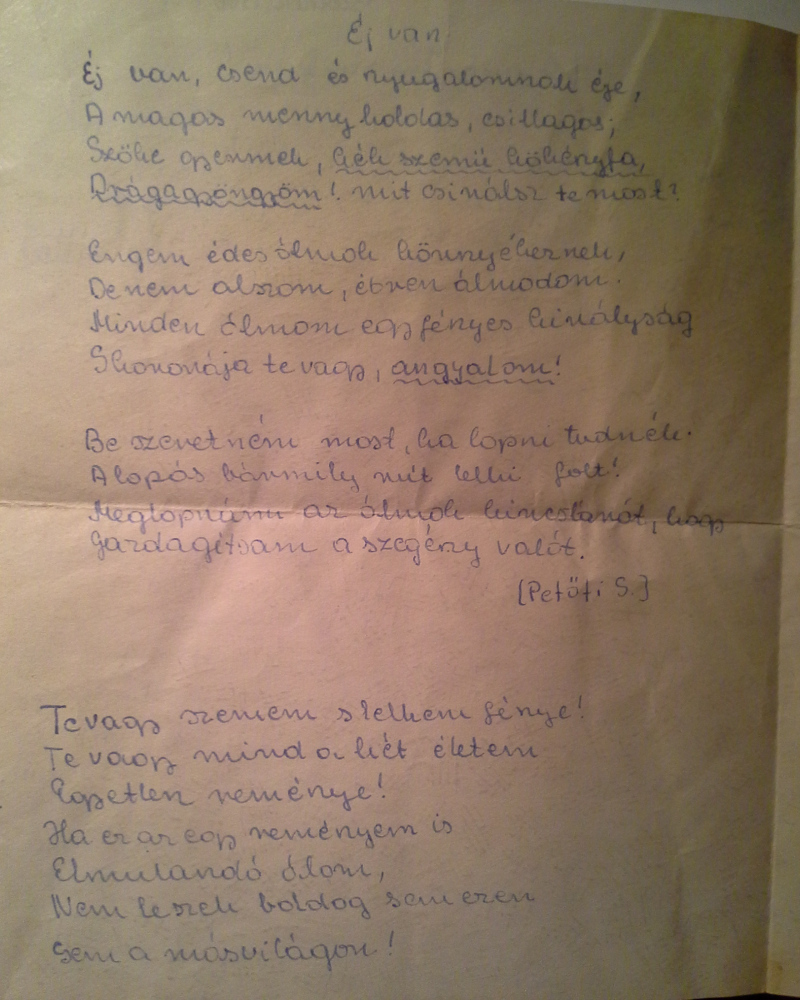 Éj van
Éj van, csend és nyugalomnak éje,
A magas menny holdas, csillagos;
Szőke gyermek, kék szemű kökényfa,
Drágagyöngyöm! mit csinálsz te most?
Engem édes álmok környékeznek,
De nem alszom, ébren álmodom.
Minden álmom egy fényes királyság
S koronája te vagy, angyalom!
Be szeretném most, ha lopni tudnék.
A lopás bármily rút lelki folt!
Meglopnám az álmok kincstárát, hogy
Gazdagítsam a szegény valót.
[Petőfi S.]
Te vagy szemem s lelkem fénye!
Te vagy mind a két életem
Egyetlen reménye!
Ha ez az egy reményem is
Elmulandó álom,
Nem leszek boldog sem ezen
Sem a másvilágon!